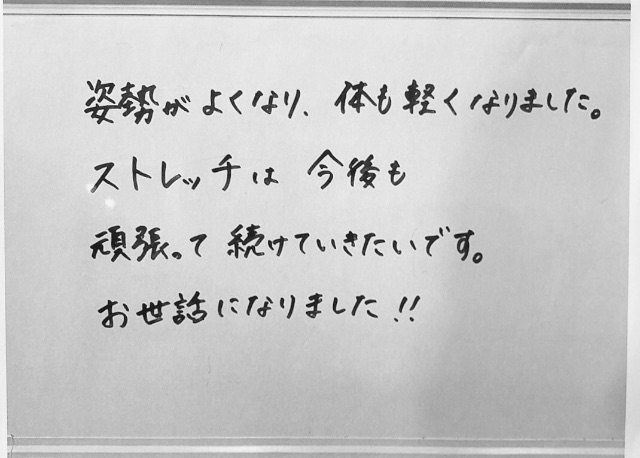 姿勢がよくなり、体も軽くなりました。
ストレッチは今後も
頑張って続けていきたいです。
お世話になりました!!